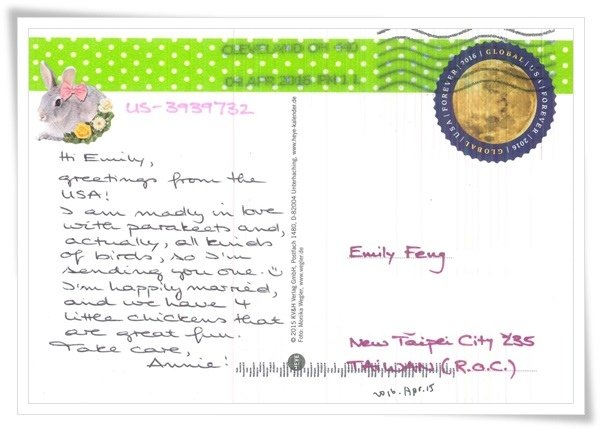 CLEVELAND OH 440
04 APR 2016 PM 1 L
GLOBAL | USA | FOREVER | 2016 | GLOBAL | USA | FOREVER | 2016
US-3939732
Hi Emily,
greetings from the
USA!
I am madly in love
with parakeets and,
actually, all kinds
of birds, so I'm
sending you one.
I'm happily married,
and we have 4
little chickens that
are great fun.
Take care,
Annie!
© 2015 KV&H Verlag GmbH, Postfach 1480, D-82004 Unterhaching, www.heye-kalender.de
Foto: Monika Wegler, www.wegler.de
HEYE
Emily Feng
New Taipei City 235
TAIWAN (R.O.C.)
2016. Apr. 15